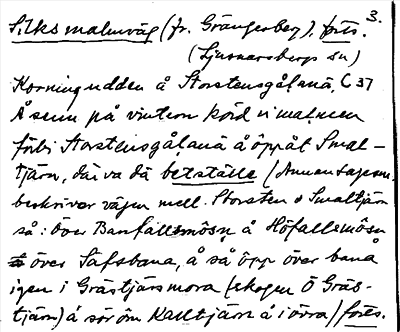 3.
Silksmalmväg (fr. Grängesberg), forts.
(Ljusnarsbergs sn)
Korningudden å Storstensgålanä, C 37
Å sum på vintern körd vi malmen
förbi Storstensgålanä å öppåt Smal-
tjärn, där va dä betställe (Annan sagesm.
beskriver vägen mell. Storsten o Smaltjärn
så: över Banfallsmösn å Höfallsmösn
över Säfsbana, å så öpp över bana
igen i Grästjärsmora (skogen Ö Gräs-
tjärn) å sör öm Kalltjärn å i övra) forts.